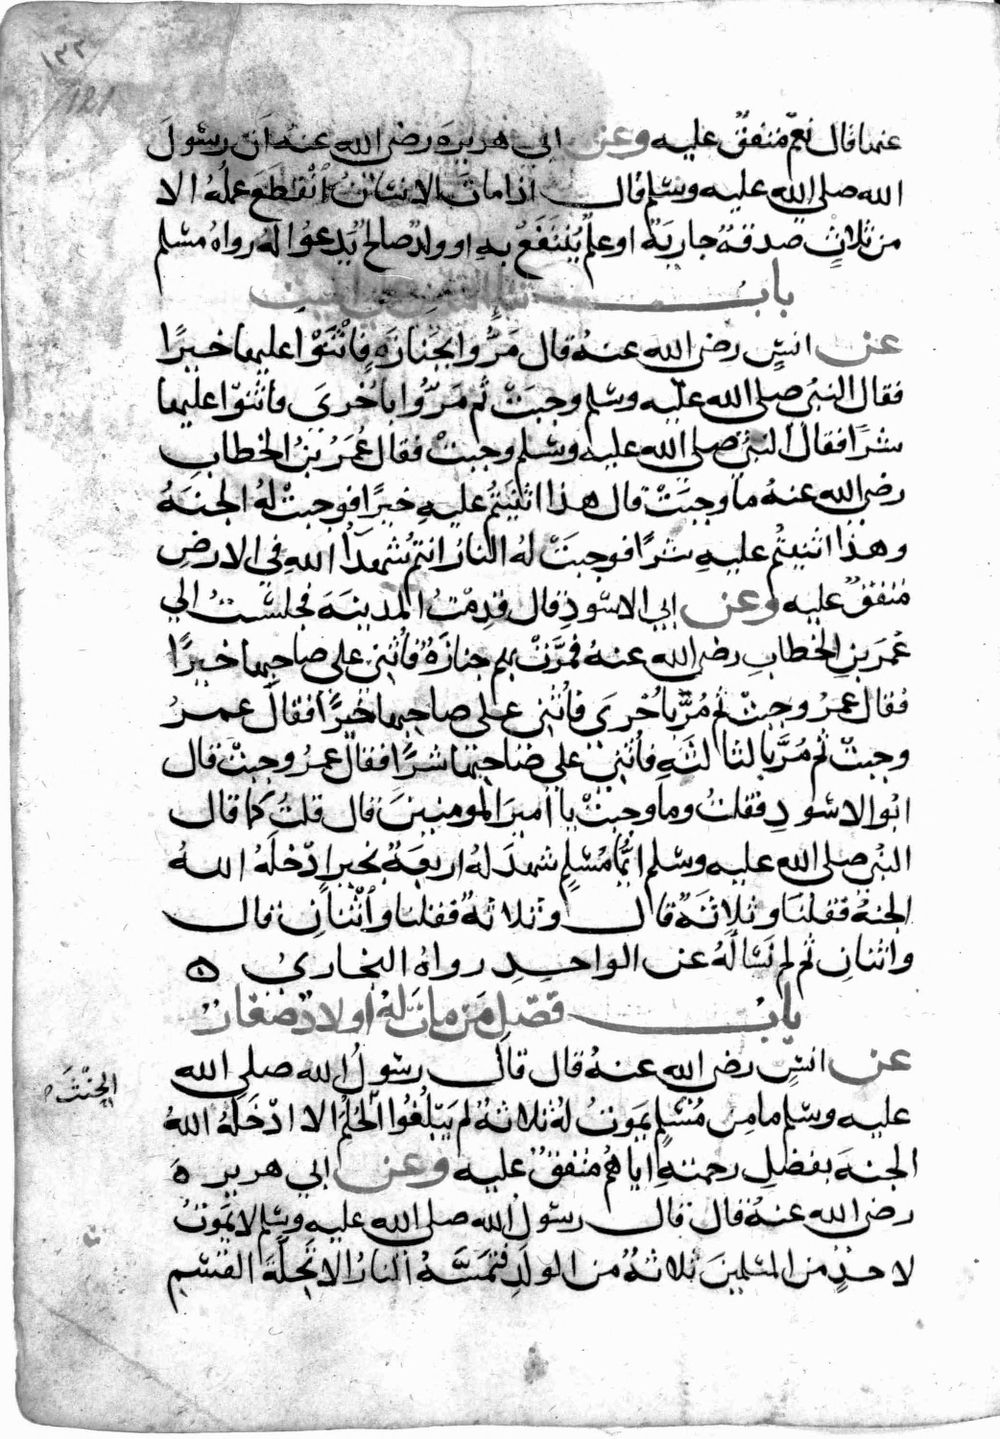 ١٣٢
121
عنها قال نعم متفق عليه وعن ابي هريرة رضي الله عنه ان رسول
الله صلى الله عليه وسلم قال اذا مات الانسان انقطع عمله الا
من ثلاث صدقة جارية او علم ينتفع به او ولد صالح يدعوا له رواه مسلم
باب ثناء الناس على الميت
عن انسٍ رضي الله عنه قال مرُّوا بجنازة فاثنوا عليها خيرًا
فقال النبي صلى الله عليه وسلم وجبت ثم مروا باخرى فاثنوا عليها
شرًا فقال النبي صلى الله عليه وسلم وجبت فقال عمر بن الخطاب
رضي الله عنه ما وجبت قال هذا اثنيتم عليه خيرًا فوجبت له الجنة
وهذا اثنيتم عليه شرًا فوجبت له النار انتم شهدآ الله في الارض
متفق عليه وعن ابي الاسود قال قدمت المدينة فجلست الي
عمر بن الخطاب رضي الله عنه فمرت بهم جنازة فاثني على صاحبها خيرًا
فقال عمر وجبت ثم مُرَّ باخرى فاثني على صاحبها خيرًا فقال عمر
وجبت ثم مُرَّ بالثالثة فاثني على صاحبها شرًا فقال عمر وجبت قال
ابو الاسود فقلت وما وجبت يا امير المومنين قال قلت كما قال
النبي صلى الله عليه وسلم ايُّما مسلم شهد له اربعة بخير ادخله الله
الجنة فقلنا وثلاثة قال وثلاثة فقلنا واثنان قال
واثنان ثم لم نسأله عن الواحد رواه البخاري ه
باب فضل من مات له اولاد صغار
عن انسٍ رضي الله عنه قال قال رسول الله صلى الله
عليه وسلم ما من مُسْلم يموت له ثلاثة لم يبلغوا الحُلُم الا ادخله الله
الحنث
الجنة بفضل رحمته اياهم متفق عليه وعن ابي هريرة
رضي الله عنه قال قال رسول الله صلى الله عليه وسلم لا يموت
لاحدٍ من المسلمين ثلاثة من الولد فتمسَّه النار الا تحلَّة القسم